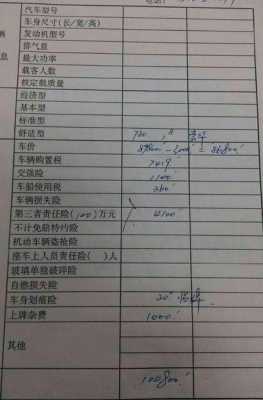 汽车型号
车身尺寸(长/宽/高)
发动机型号
排气量
最大功率
载客人数
核定载质量
经济型
基本型
标准型
舒适型
车价
车辆购置税 7419
交强险 1100
车船使用税 360
车辆损失险
第三者责任险(100)万元 4100
不计免赔特约险
机动车辆盗抢险
座车上人员责任险( )人
玻璃单独破碎险
自燃损失险
车身划痕险
上牌杂费 1000
其他
100800
息